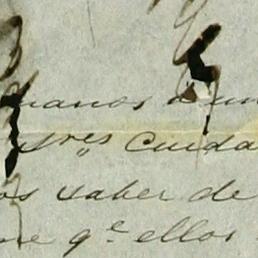 manos a un
tres Cuida
os saber de
me q.e ellos